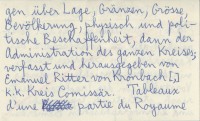 gen über Lage, Gränzen, Grösse,
Bevölkerung, physisch und poli-
tische Beschaffenheit, dann der
Administration des ganzen Kreises;
verfasst und herausgegeben von
Emanuel Ritter von Kronbach [,]
k.k. Kreis Comissär. Tableaux
d'une partie du Royaume